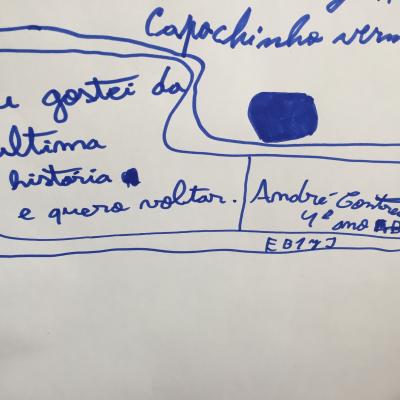 Capochinho verm
u gostei da
ultima
história
e quero voltar.
André Contre
4º ano
EB1/JI